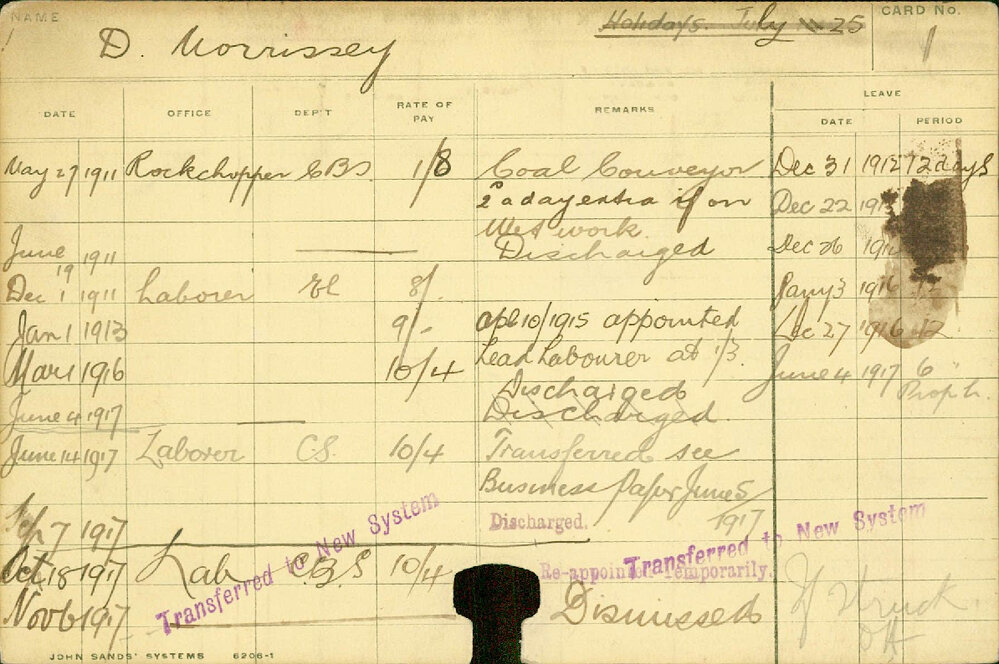 NAME
D. Morrissey
Holidays. July 25
CARD No.
1
DATE OFFICE DEP'T RATE OF PAY REMARKS LEAVE
DATE PERIOD
May 27 1911 Rockchopper CBS 1/8 Coal Conveyor Dec 31 1912 12 days
2d a day extra if on Dec 22 191
Wet work.
June 19 1911 Discharged Dec 26 191
Dec 1 1911 Laborer EL 8/- Jany 3 1916 12
Jan 1 1913 9/- Apl 10/1915 appointed Dec 27 1916 12
Mar 1 1916 10/4 Lead Labourer at 1/3. June 4 1917 6
Discharged Prop h.
June 4 1917 Discharged
June 14 1917 Laborer CS. 10/4 Transferred see
Business Paper June 5
1917
Sep 7 1917 Discharged.
Oct 18 1917 Lab CBS 10/4 Re-appointed Temporarily.
Nov 6 1917 Dismissed
Transferred to New System
Transferred to New System
JOHN SANDS' SYSTEMS 6206-1